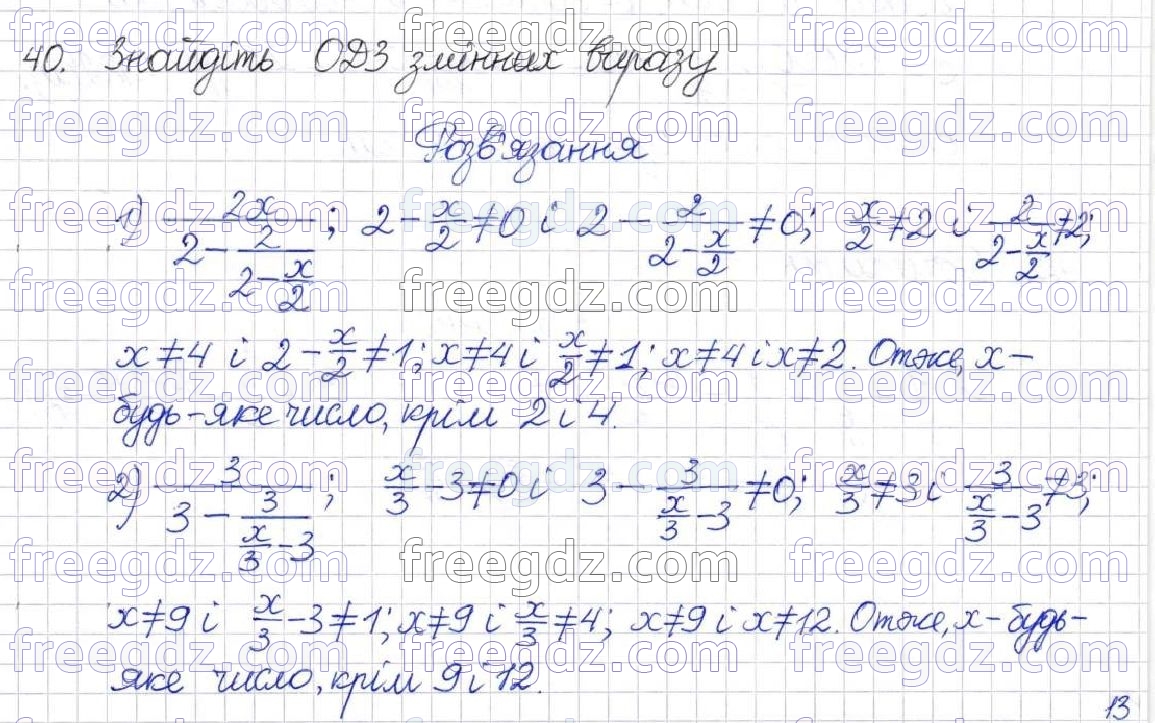 40. Знайдіть ОДЗ змінних виразу
Розв'язання
1) 2x/(2 - 2/(2 - x/2)); 2 - x/2 ≠ 0 і 2 - 2/(2 - x/2) ≠ 0; x/2 ≠ 2 і 2/(2 - x/2) ≠ 2;
x ≠ 4 і 2 - x/2 ≠ 1; x ≠ 4 і x/2 ≠ 1; x ≠ 4 і x ≠ 2. Отже, x -
будь-яке число, крім 2 і 4.
2) 3/(3 - 3/(x/3 - 3)); x/3 - 3 ≠ 0 і 3 - 3/(x/3 - 3) ≠ 0; x/3 ≠ 3 і 3/(x/3 - 3) ≠ 3;
x ≠ 9 і x/3 - 3 ≠ 1; x ≠ 9 і x/3 ≠ 4; x ≠ 9 і x ≠ 12. Отже, x - будь-
яке число, крім 9 і 12.
13
freegdz.com